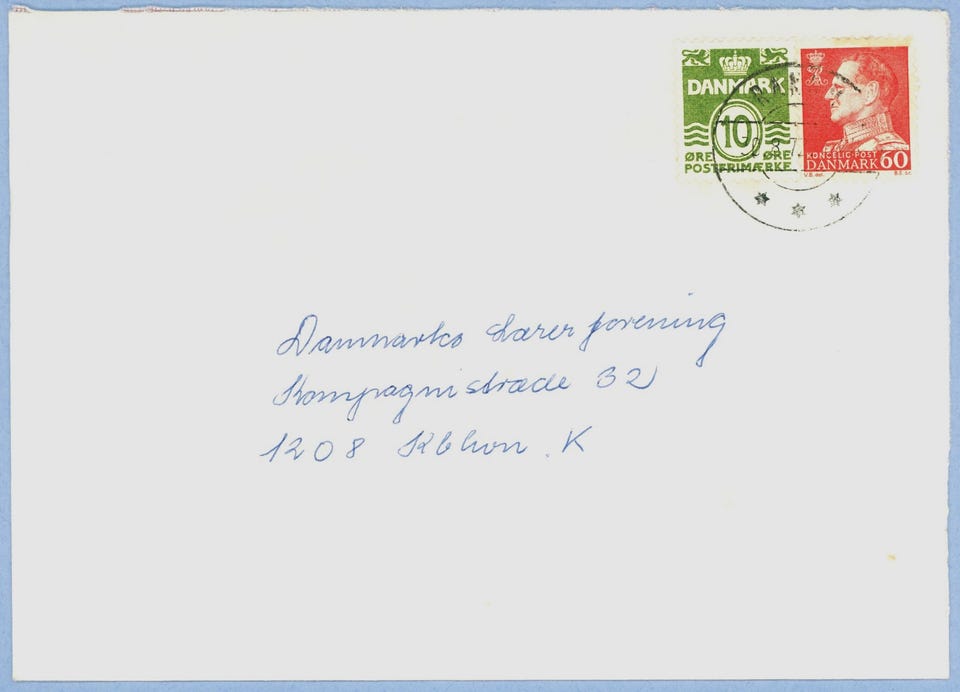 DANMARK
10
ØRE ØRE
POSTFRIMÆRKE
KONGELIG POST
DANMARK 60
V.B. del. B.E. sc.
Danmarks Lærerforening
Kompagnistræde 32
1208 Kbhvn. K